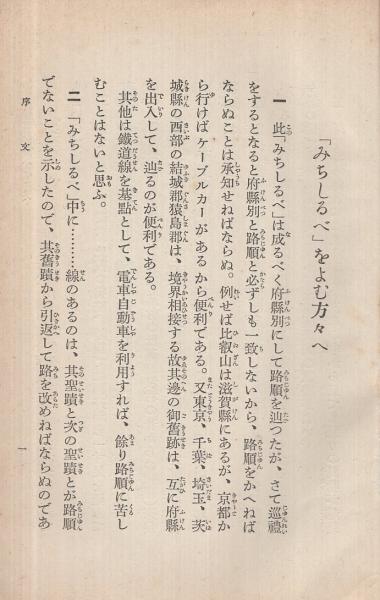 「みちしるべ」をよむ方々へ
一 此「みちしるべ」は成るべく府縣別にして路順を辿つたが、さて巡禮
をするとなると府縣別と路順と必ずしも一致しないから、路順をかへねば
ならぬことは承知せねばならぬ。例せば比叡山は滋賀縣にあるが、京都か
ら行けばケーブルカーがあるから便利である。又東京、千葉、埼玉、茨
城縣の西部の結城郡猿島郡は、境界相接する故其邊の御舊跡は、互に府縣
を出入して、辿るのが便利である。
其他は鐵道線を基點として、電車自動車を利用すれば、餘り路順に苦し
むことはないと思ふ。
二 「みちしるべ」中に………線のあるのは、其聖蹟と次の聖蹟とが路順
でないことを示したので、其舊蹟から引返して路を改めねばならぬのであ
序文
一